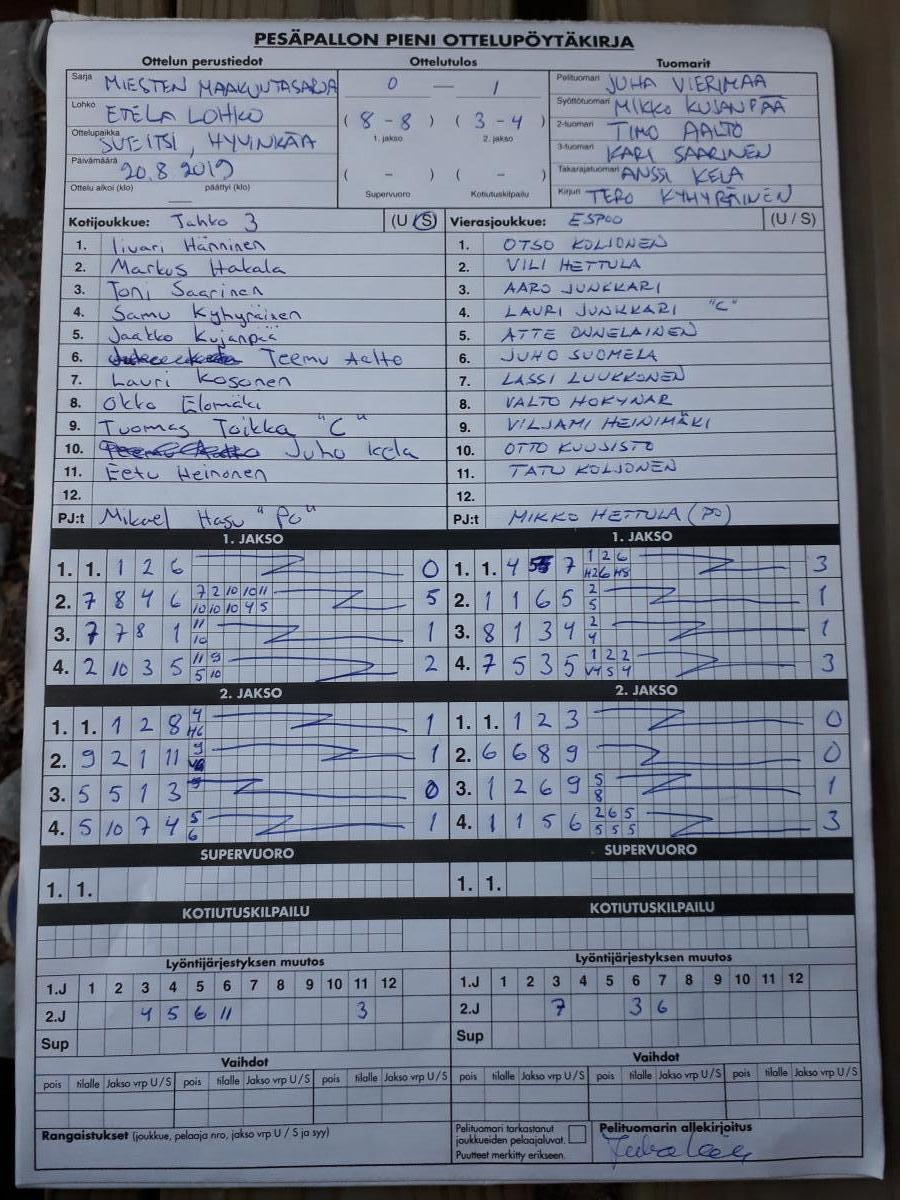 PESÄPALLON PIENI OTTELUPÖYTÄKIRJA
Ottelun perustiedot Ottelutulos Tuomarit
Sarja MIESTEN MAAKUNTASARJA 0 — 1 Pelituomari JUHA VIERIMAA
Lohko ETELÄ LOHKO ( 8 - 8 ) ( 3 - 4 ) Syöttötuomari MIKKO KUJANPÄÄ
1. jakso 2. jakso
Ottelupaikka SVEITSI, HYVINKÄÄ 2-tuomari TIMO AALTO
Päivämäärä 20.8.2019 3-tuomari KARI SAARINEN
( - ) ( - ) Takarajatuomari ANSSI KELA
Ottelu alkoi (klo) päättyi (klo) Supervuoro Kotiutuskilpailu Kirjuri TERO KYHYRÄINEN
Kotijoukkue: Tahko 3 (U / S) Vierasjoukkue: ESPOO (U / S)
1. Iivari Hänninen 1. OTSO KOLJONEN
2. Markus Hakala 2. VILI HETTULA
3. Toni Saarinen 3. AARO JUNKKARI
4. Samu Kyhyräinen 4. LAURI JUNKKARI "C"
5. Jaakko Kujanpää 5. ATTE ONNELAINEN
6. Teemu Aalto 6. JUHO SUOMELA
7. Lauri Kosonen 7. LASSI LUUKKONEN
8. Okko Elomäki 8. VALTO HOKYNAR
9. Tuomas Toikka "C" 9. VILJAMI HEINIMÄKI
10. Juho Kela 10. OTTO KUUSISTO
11. Eetu Heinonen 11. TATU KOLJONEN
12. 12.
PJ:t Mikael Hasu "PO" PJ:t MIKKO HETTULA (PO)
1. JAKSO 1. JAKSO
1. 1. 1 2 6 0 1. 1. 4 7 1 2 6 3
H26 H5
2. 7 8 4 6 7 2 10 10 11 5 2. 1 1 6 5 2 1
10 10 10 4 5 5
3. 7 7 8 1 11 1 3. 8 1 3 4 2 1
10 4
4. 2 10 3 5 11 9 2 4. 7 5 3 5 1 2 2 3
5 10 V4 5 4
2. JAKSO 2. JAKSO
1. 1. 1 2 8 4 1 1. 1. 1 2 3 0
H6
2. 9 2 1 11 9 1 2. 6 6 8 9 0
3. 5 5 1 3 0 3. 1 2 6 9 5 1
8
4. 5 10 7 4 5 1 4. 1 1 5 6 2 6 5 3
6 5 5 5
SUPERVUORO SUPERVUORO
1. 1. 1. 1.
KOTIUTUSKILPAILU KOTIUTUSKILPAILU
Lyöntijärjestyksen muutos Lyöntijärjestyksen muutos
1.J 1 2 3 4 5 6 7 8 9 10 11 12 1.J 1 2 3 4 5 6 7 8 9 10 11 12
2.J 4 5 6 11 3 2.J 7 3 6
Sup Sup
Vaihdot Vaihdot
pois tilalle Jakso vrp U / S pois tilalle Jakso vrp U / S pois tilalle Jakso vrp U / S pois tilalle Jakso vrp U / S pois tilalle Jakso vrp U / S pois tilalle Jakso vrp U / S
Rangaistukset (joukkue, pelaaja nro, jakso vrp U / S ja syy) Pelituomari tarkastanut Pelituomarin allekirjoitus
joukkueiden pelaajaluvat.
Puutteet merkitty erikseen.